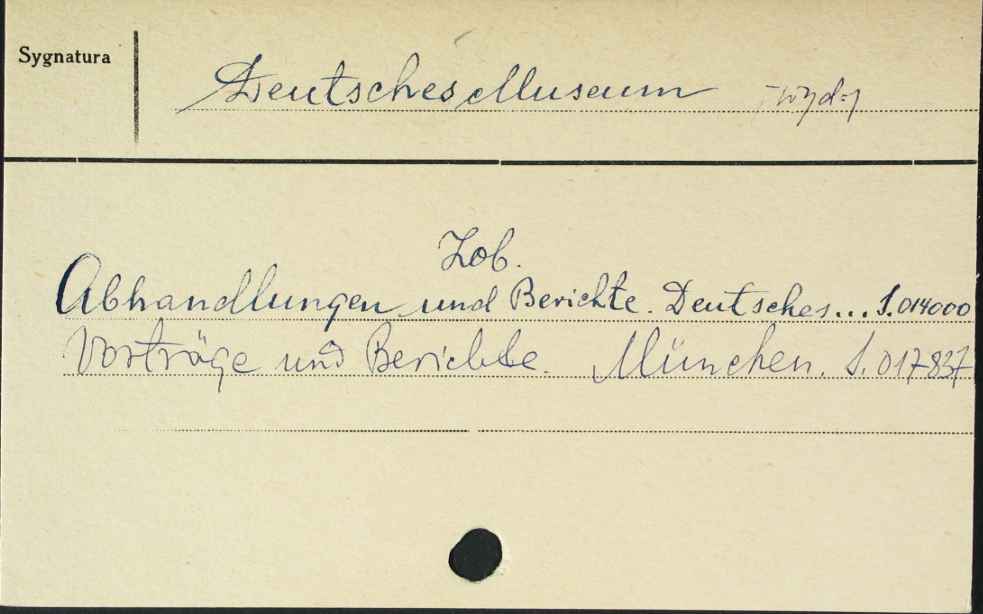 Sygnatura
Deutsches Museum -wyd-
Zob.
Abhandlungen und Berichte. Deutsches... S.014000
Vorträge und Berichte. München. S.017837